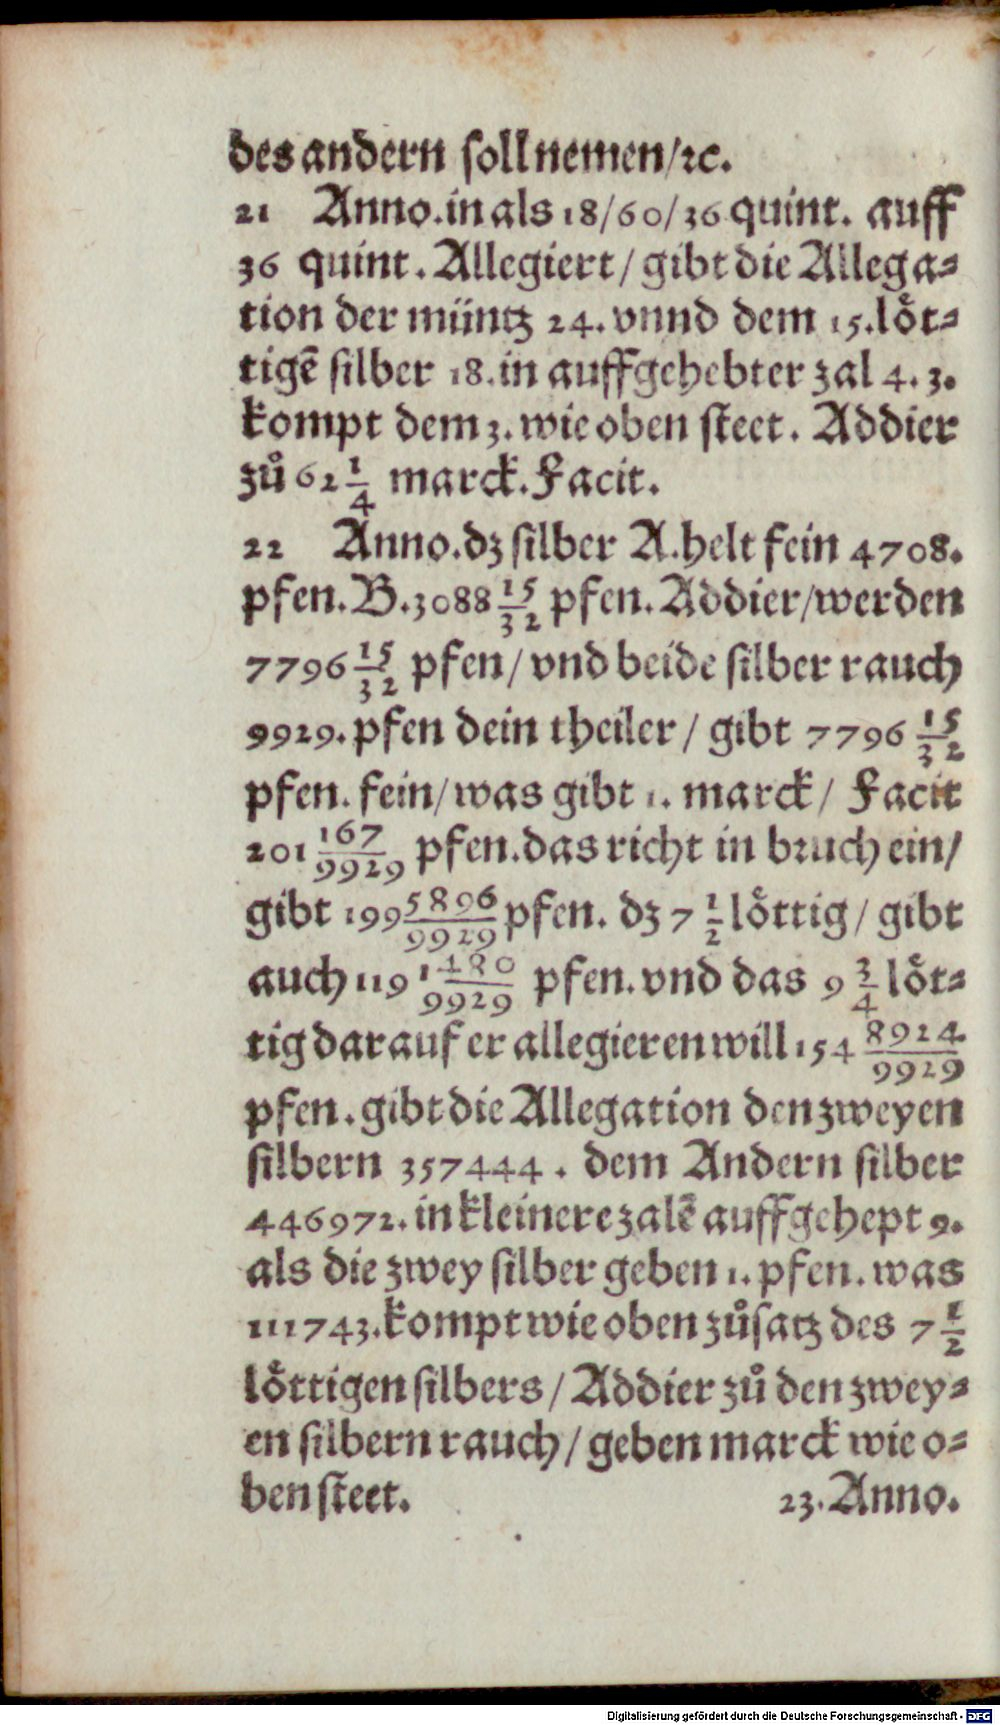 des andern soll nemen/ꝛc.
21 Anno. in als 18/60/36 quint. auff
36 quint. Allegiert/ gibt die Allega⸗
tion der müntz 24. vnnd dem 15.löt⸗
tigē silber 18.in auffgehebter zal 4. 3.
kompt dem 3. wie oben steet. Addier
zů 62 1/4 marck. Facit.
22 Anno. dz silber A. helt fein 4708.
pfen. B. 3088 15/32 pfen. Addier/werden
7796 15/32 pfen/ vnd beide silber rauch
9929. pfen dein theiler/ gibt 7796 15/32
pfen. fein/ was gibt 1. marck/ Facit
201 167/9929 pfen. das richt in bruch ein/
gibt 199 5896/9929 pfen. dz 7 1/2 löttig/ gibt
auch 119 1480/9929 pfen. vnd das 9 3/4 löt⸗
tig darauf er allegieren will 154 8924/9929
pfen. gibt die Allegation den zweyen
silbern 357444. dem Andern silber
446972. in kleinere zalē auffgehept 9.
als die zwey silber geben 1. pfen. was
111743. kompt wie oben zůsatz des 7 1/2
löttigen silbers/ Addier zů den zwey⸗
en silbern rauch/ geben marck wie o⸗
ben steet. 23. Anno.
Digitalisierung gefördert durch die Deutsche Forschungsgemeinschaft - DFG